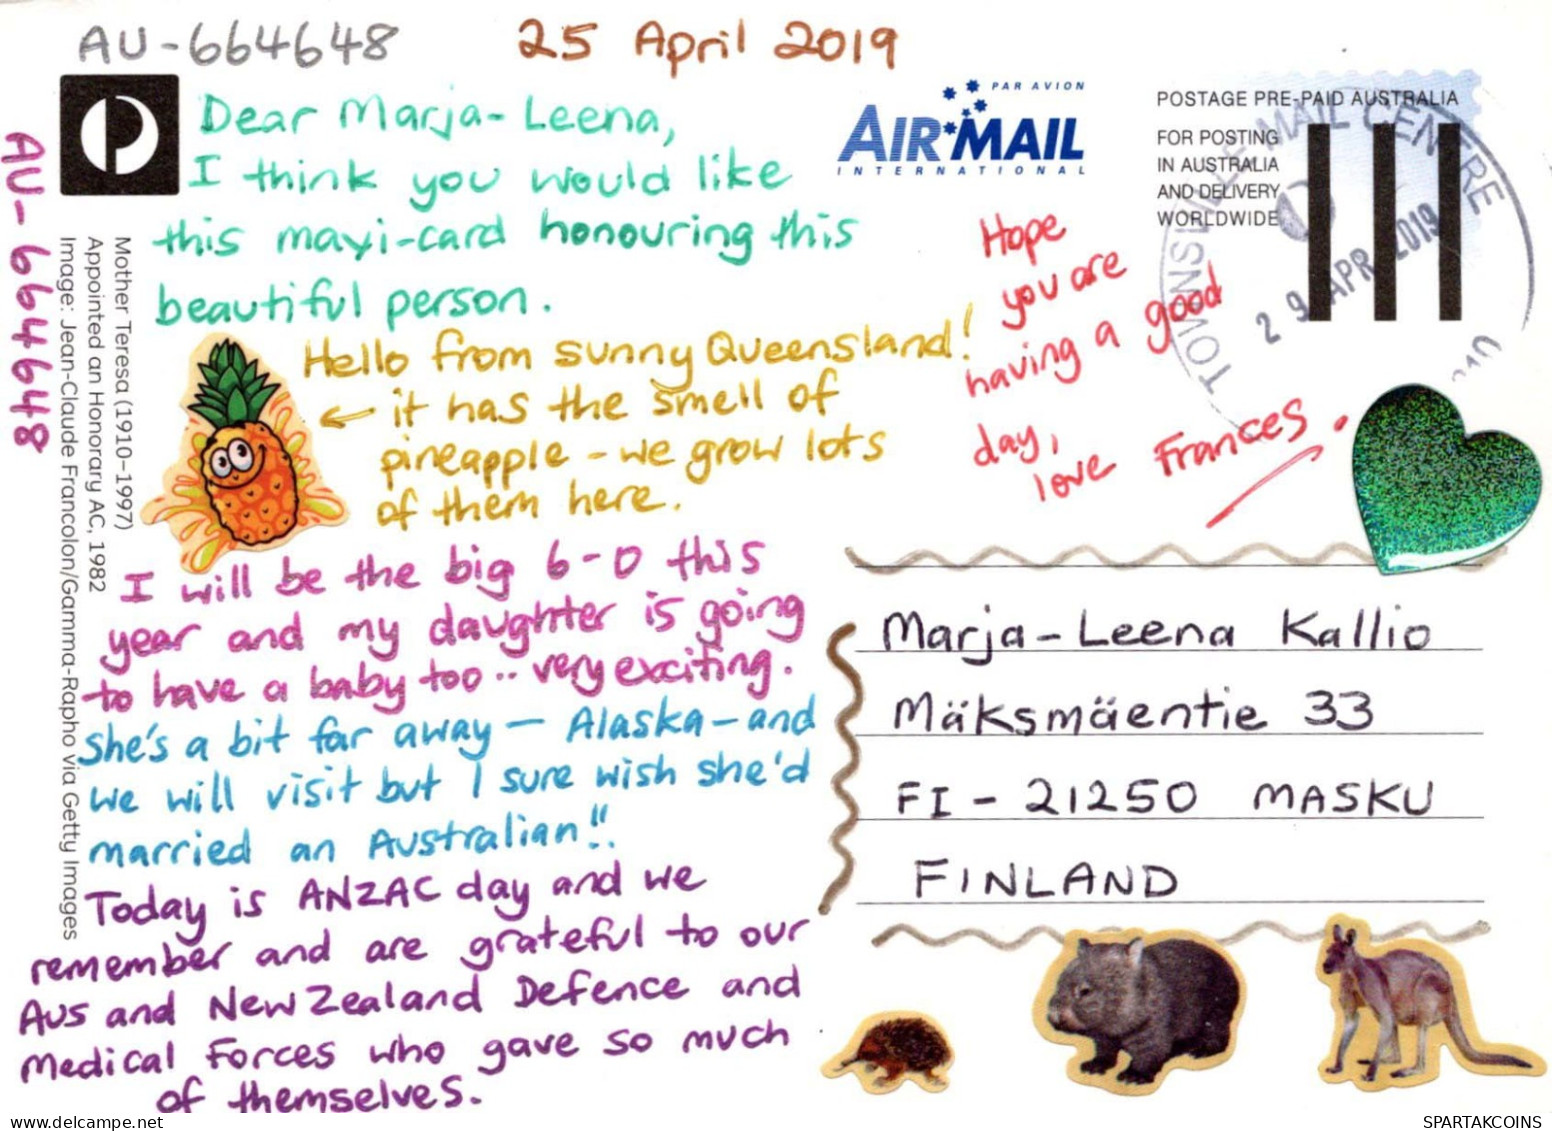 AU-664648
25 April 2019
Dear Marja-Leena,
I think you would like
this maxi-card honouring this
beautiful person.
Hello from sunny Queensland!
← it has the smell of
pineapple - we grow lots
of them here.
I will be the big 6-0 this
year and my daughter is going
to have a baby too .. very exciting.
She's a bit far away - Alaska - and
we will visit but I sure wish she'd
married an Australian!!
Today is ANZAC day and we
remember and are grateful to our
Aus and New Zealand Defence and
Medical Forces who gave so much
of themselves.
AU-664648
Mother Teresa (1910–1997)
Appointed an Honorary AC, 1982
Image: Jean-Claude Francolon/Gamma-Rapho via Getty Images
PAR AVION
AIR MAIL
INTERNATIONAL
POSTAGE PRE-PAID AUSTRALIA
FOR POSTING
IN AUSTRALIA
AND DELIVERY
WORLDWIDE
TOWNSVILLE MAIL CENTRE
29 APR 2019
Hope
you are
having a good
day,
love Frances.
Marja-Leena Kallio
Mäksmäentie 33
FI - 21250 MASKU
FINLAND
www.delcampe.net
SPARTAKCOINS